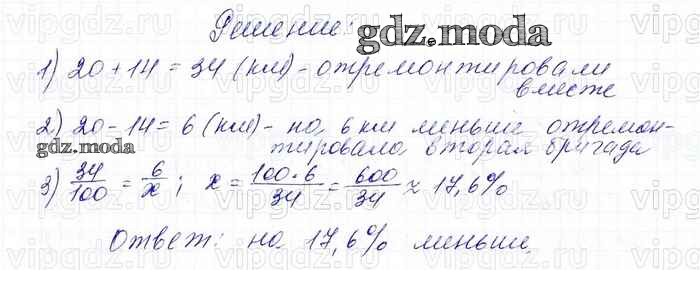 Решение:
gdz.moda
1) 20 + 14 = 34 (км) - отремонтировали
вместе
2) 20 - 14 = 6 (км) - на 6 км меньше отремон-
тировала вторая бригада
gdz.moda
3) 34/100 = 6/x ; x = 100·6/34 = 600/34 ≈ 17,6%
Ответ: на 17,6% меньше.